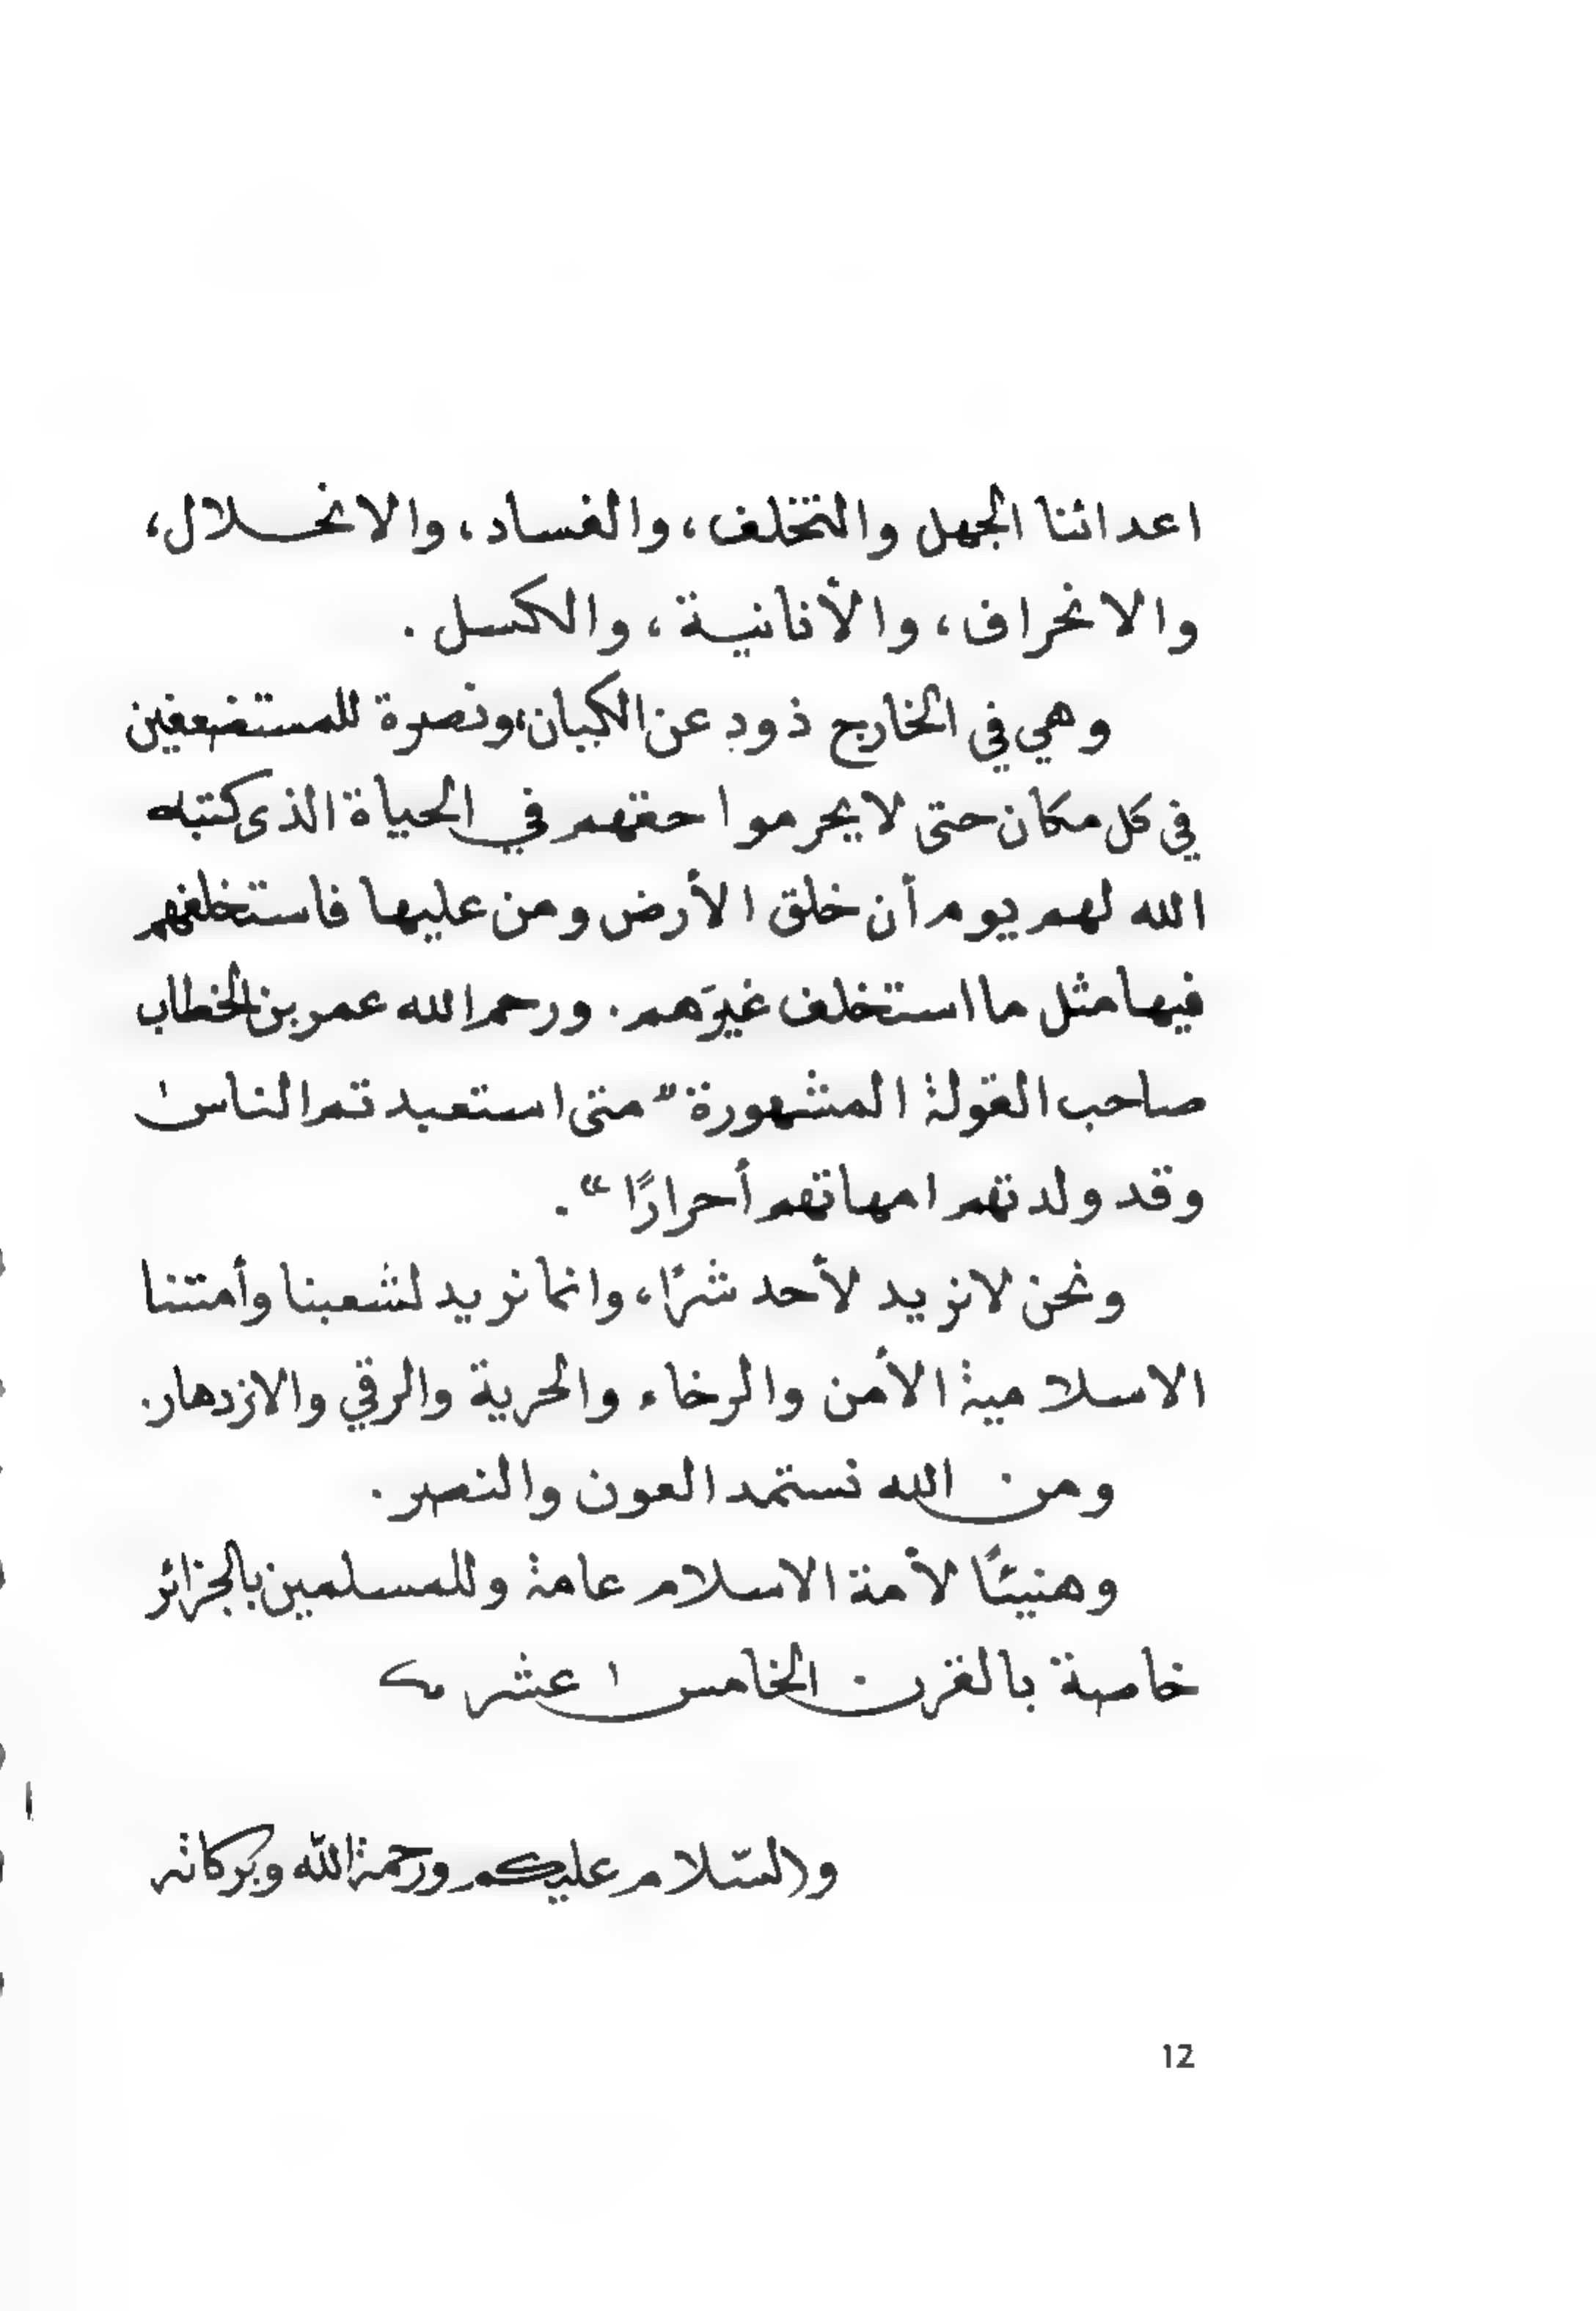 اعدائنا الجهل والتخلف، والفساد، والانحلال،
والانحراف، والأنانية، والكسل.
وهي في الخارج ذود عن الكيان، ونصرة للمستضعفين
في كل مكان حتى لا يحرموا حقهم في الحياة الذي كتبه
الله لهم يوم أن خلق الأرض ومن عليها فاستخلفهم
فيها مثل ما استخلف غيرَهم. ورحم الله عمر بن الخطاب
صاحب القولة المشهورة "متى استعبدتم الناس
وقد ولدتهم امهاتهم أحرارًا".
ونحن لا نريد لأحد شرًا، وانما نريد لشعبنا وأمتنا
الاسلامية الأمن والرخاء والحرية والرقي والازدهار.
ومن الله نستمد العون والنصر.
وهنيئًا لأمة الاسلام عامة وللمسلمين بالجزائر
خاصة بالقرن الخامس عشر
والسّلام عليكم ورحمة الله وبركاته
12